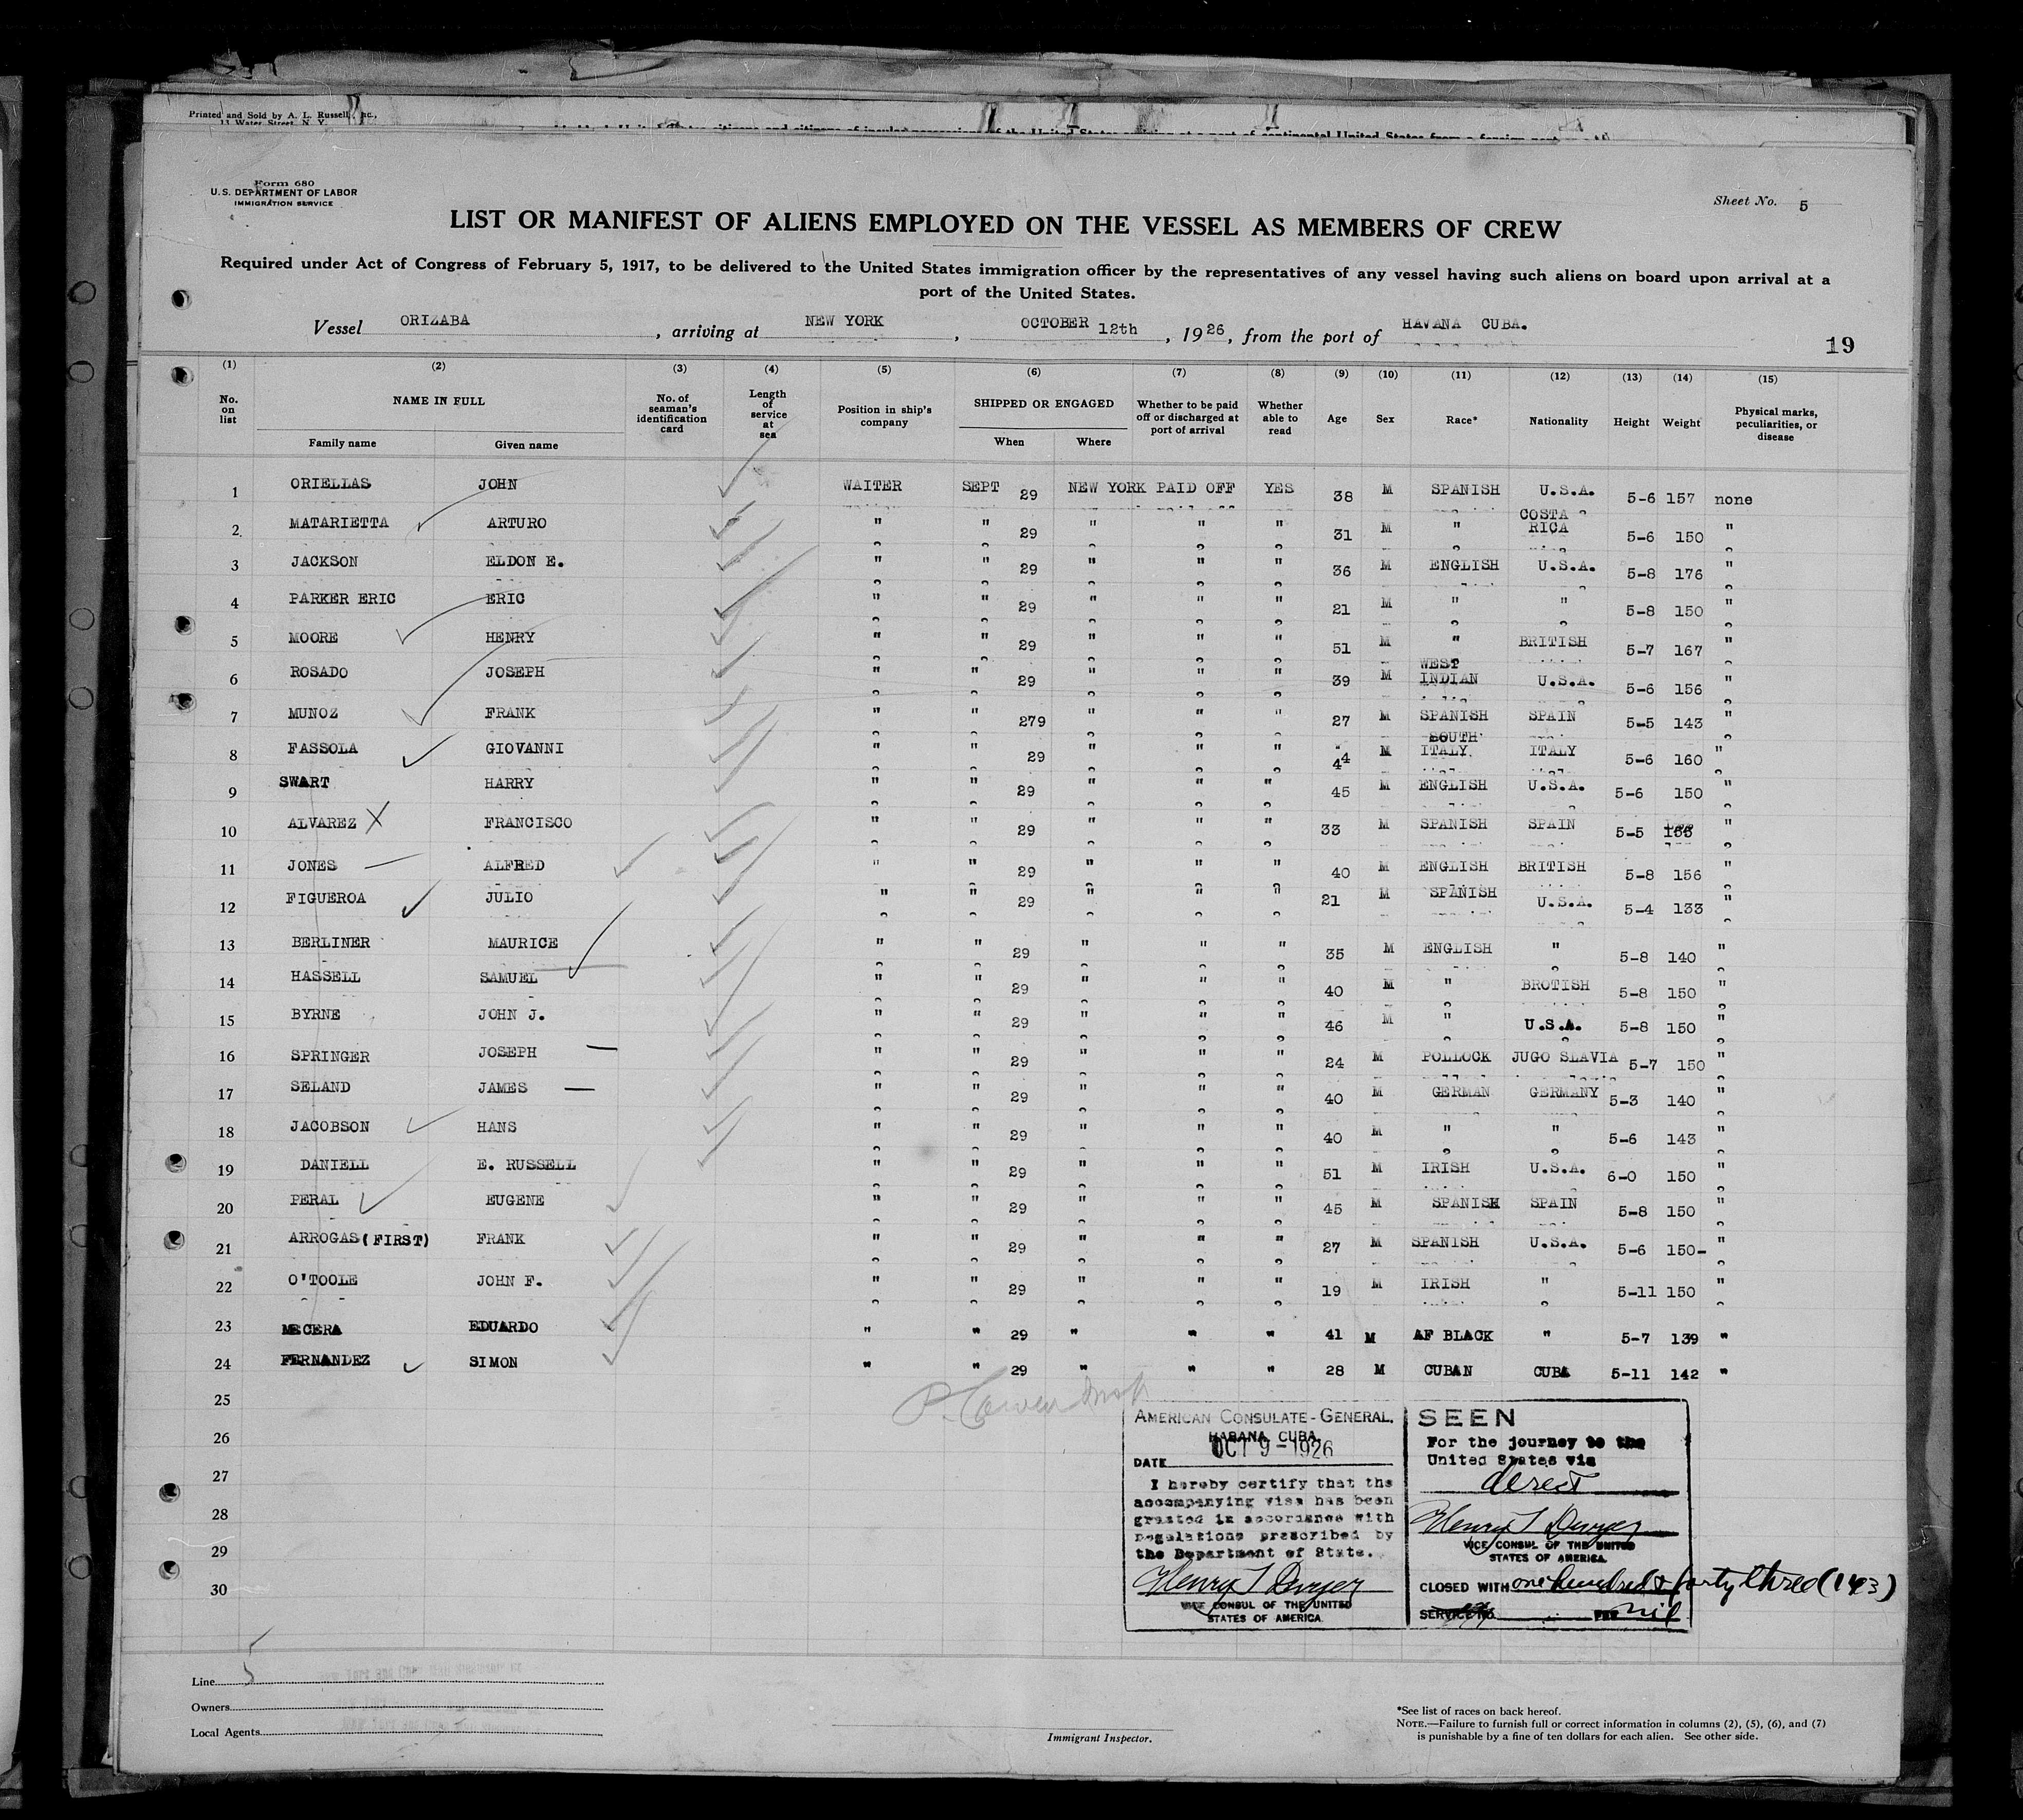 Printed and Sold by A. L. Russell, Inc.,
11 Water Street, N. Y.
Form 680
U. S. DEPARTMENT OF LABOR
IMMIGRATION SERVICE
Sheet No. 5
LIST OR MANIFEST OF ALIENS EMPLOYED ON THE VESSEL AS MEMBERS OF CREW
Required under Act of Congress of February 5, 1917, to be delivered to the United States immigration officer by the representatives of any vessel having such aliens on board upon arrival at a
port of the United States.
Vessel ORIZABA, arriving at NEW YORK, OCTOBER 12th, 1926, from the port of HAVANA CUBA.
19
(1) (2) (3) (4) (5) (6) (7) (8) (9) (10) (11) (12) (13) (14) (15)
No. on list NAME IN FULL Family name Given name No. of seaman's identification card Length of service at sea Position in ship's company SHIPPED OR ENGAGED When Where Whether to be paid off or discharged at port of arrival Whether able to read Age Sex Race* Nationality Height Weight Physical marks, peculiarities, or disease
1 ORIELLAS JOHN WAITER SEPT 29 NEW YORK PAID OFF YES 38 M SPANISH U.S.A. 5-6 157 none
2 MATARIETTA ARTURO " " 29 " " " 31 M " COSTA RICA 5-6 150 "
3 JACKSON ELDON E. " " 29 " " " 36 M ENGLISH U.S.A. 5-8 176 "
4 PARKER ERIC ERIC " " 29 " " " 21 M " " 5-8 150 "
5 MOORE HENRY " " 29 " " " 51 M " BRITISH 5-7 167 "
6 ROSADO JOSEPH " " 29 " " " 39 M WEST INDIAN U.S.A. 5-6 156 "
7 MUNOZ FRANK " " 279 " " " 27 M SPANISH SPAIN 5-5 143 "
8 FASSOLA GIOVANNI " " 29 " " " 44 M SOUTH ITALY ITALY 5-6 160 "
9 SWART HARRY " " 29 " " " 45 M ENGLISH U.S.A. 5-6 150 "
10 ALVAREZ X FRANCISCO " " 29 " " " 33 M SPANISH SPAIN 5-5 "
11 JONES — ALFRED " " 29 " " " 40 M ENGLISH BRITISH 5-8 156 "
12 FIGUEROA JULIO " " 29 " " " 21 M SPANISH U.S.A. 5-4 133 "
13 BERLINER MAURICE " " 29 " " " 35 M ENGLISH " 5-8 140 "
14 HASSELL SAMUEL " " 29 " " " 40 M " BROTISH 5-8 150 "
15 BYRNE JOHN J. " " 29 " " " 46 M " U.S.A. 5-8 150 "
16 SPRINGER JOSEPH — " " 29 " " " 24 M POLLOCK JUGO SLAVIA 5-7 150 "
17 SELAND JAMES — " " 29 " " " 40 M GERMAN GERMANY 5-3 140 "
18 JACOBSON HANS " " 29 " " " 40 M " " 5-6 143 "
19 DANIELL E. RUSSELL " " 29 " " " 51 M IRISH U.S.A. 6-0 150 "
20 PERAL EUGENE " " 29 " " " 45 M SPANISH SPAIN 5-8 150 "
21 ARROGAS (FIRST) FRANK " " 29 " " " 27 M SPANISH U.S.A. 5-6 150- "
22 O'TOOLE JOHN F. " " 29 " " " 19 M IRISH " 5-11 150 "
23 MECERA EDUARDO " " 29 " " " 41 M AF BLACK " 5-7 139 "
24 FERNANDEZ SIMON " " 29 " " " 28 M CUBAN CUBA 5-11 142 "
25
26
27
28
29
30
AMERICAN CONSULATE-GENERAL,
HABANA, CUBA.
DATE OCT 9-1926
I hereby certify that the
accompanying visa has been
granted in accordance with
regulations prescribed by
the Department of State.
Henry T Dwyer
VICE CONSUL OF THE UNITED
STATES OF AMERICA.
SEEN
For the journey to the
United States via
direct
Henry T Dwyer
VICE CONSUL OF THE UNITED
STATES OF AMERICA.
CLOSED WITH one hundred & forty three (143)
SERVICE No. FEE nil
Line 5
Owners
Local Agents
Immigrant Inspector.
*See list of races on back hereof.
NOTE.—Failure to furnish full or correct information in columns (2), (5), (6), and (7)
is punishable by a fine of ten dollars for each alien. See other side.